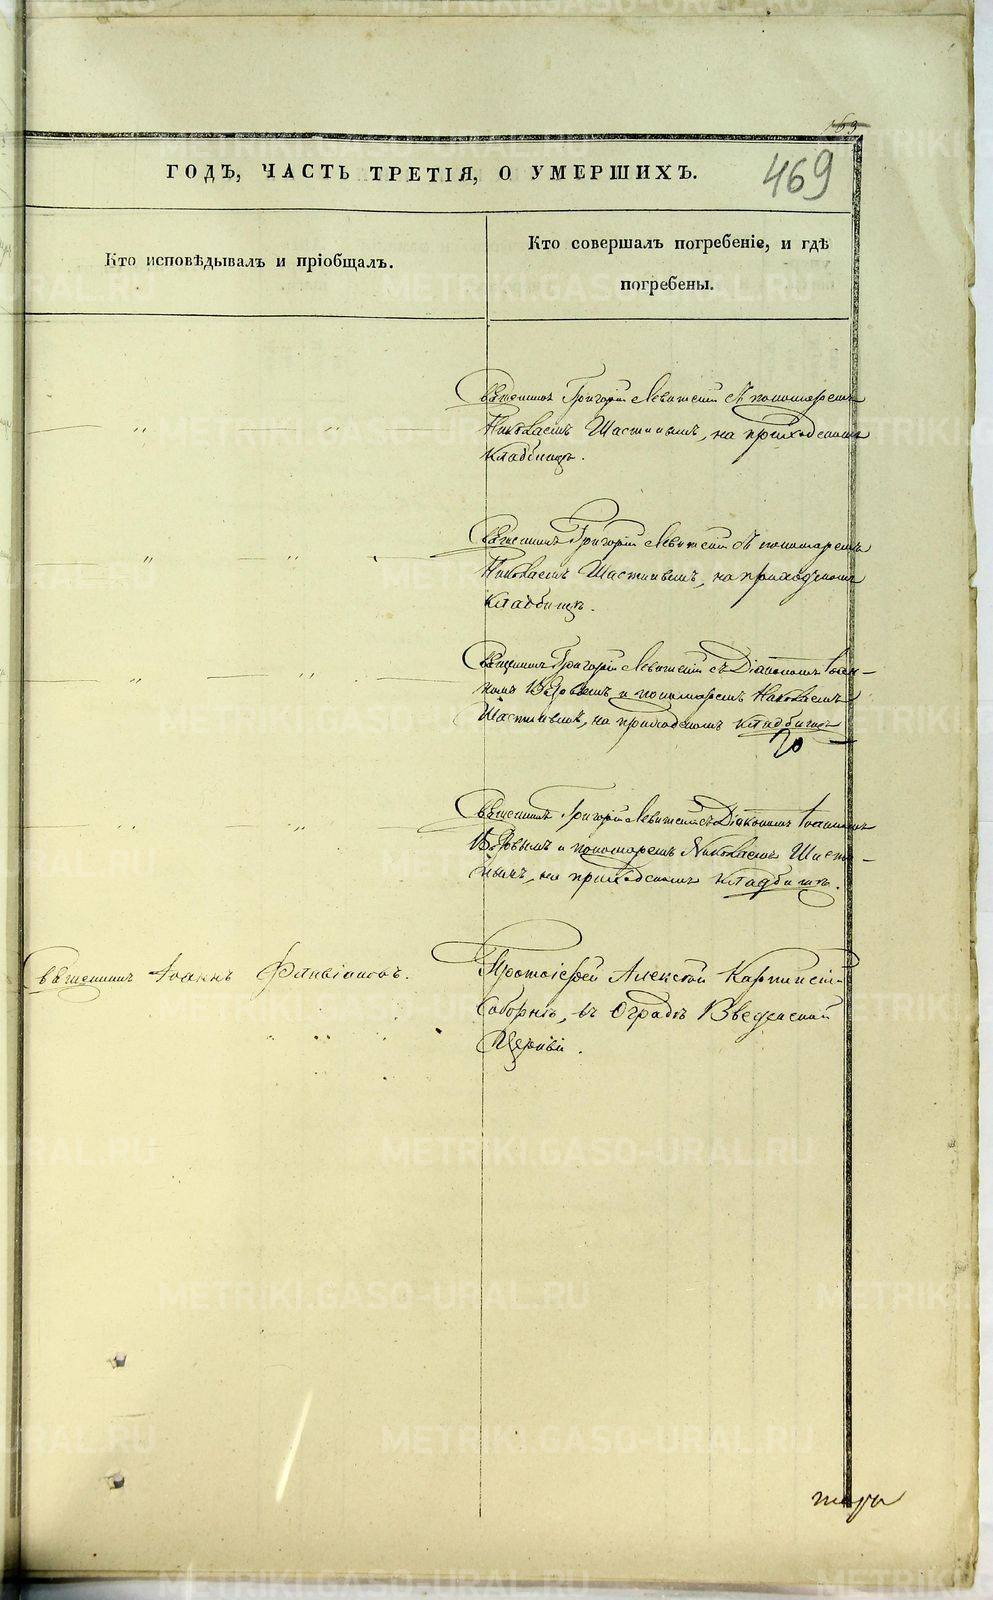 163
ГОДЪ, ЧАСТЬ ТРЕТІЯ, О УМЕРШИХЪ.
469
Кто исповѣдывалъ и пріобщалъ.
Кто совершалъ погребеніе, и гдѣ
погребены.
Священникъ Григорій Левитскій съ пономаремъ
Николаемъ Щастливымъ, на приходскомъ
кладбищѣ.
Священникъ Григорій Левитскій съ пономаремъ
Николаемъ Щастливымъ, на приходскомъ
кладбищѣ.
Священникъ Григорій Левитскій съ Діакономъ Іоан-
номъ и пономаремъ Николаемъ
Щастливымъ, на приходскомъ кладбищѣ
Священникъ Григорій Левитскій съ Діакономъ Іоанномъ
и пономаремъ Николаемъ Щастли-
вымъ, на приходскомъ кладбищѣ.
Священникъ Іоаннъ Флавіановъ.
Протоіерей Алексѣй Карпинскій
Соборнѣ, въ Оградѣ Введенской
Церкви.
METRIKI.GASO-URAL.RU